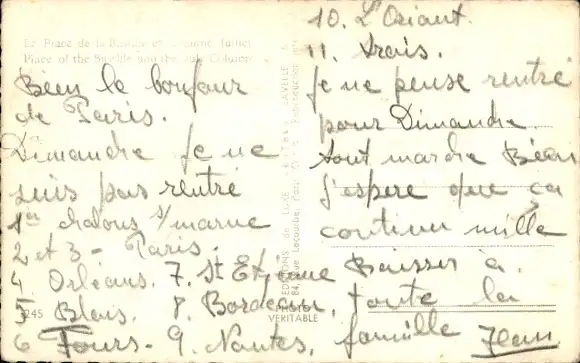 La Place de la Bastille et Colonne Juillet
Place of the Bastille and the July Column
Bien le bonjour
de Paris.
Dimanche je ne
suis pas rentré
1er chalons s/marne
2 et 3 - Paris.
4 Orléans. 7. St Etienne
5 Blois. 8. Bordeaux,
6 Tours - 9. Nantes,
10. L'Oriant.
11. Arais.
Je ne pense rentré
pour Dimanche
tout marche Bien
J'espere que ça
continu mille
Baisser à
toute la
famille Jean
EDITIONS de LUXE ESTEL LAVELLE &
84, Rue Lecourbe, Paris
PHOTO
VERITABLE
245